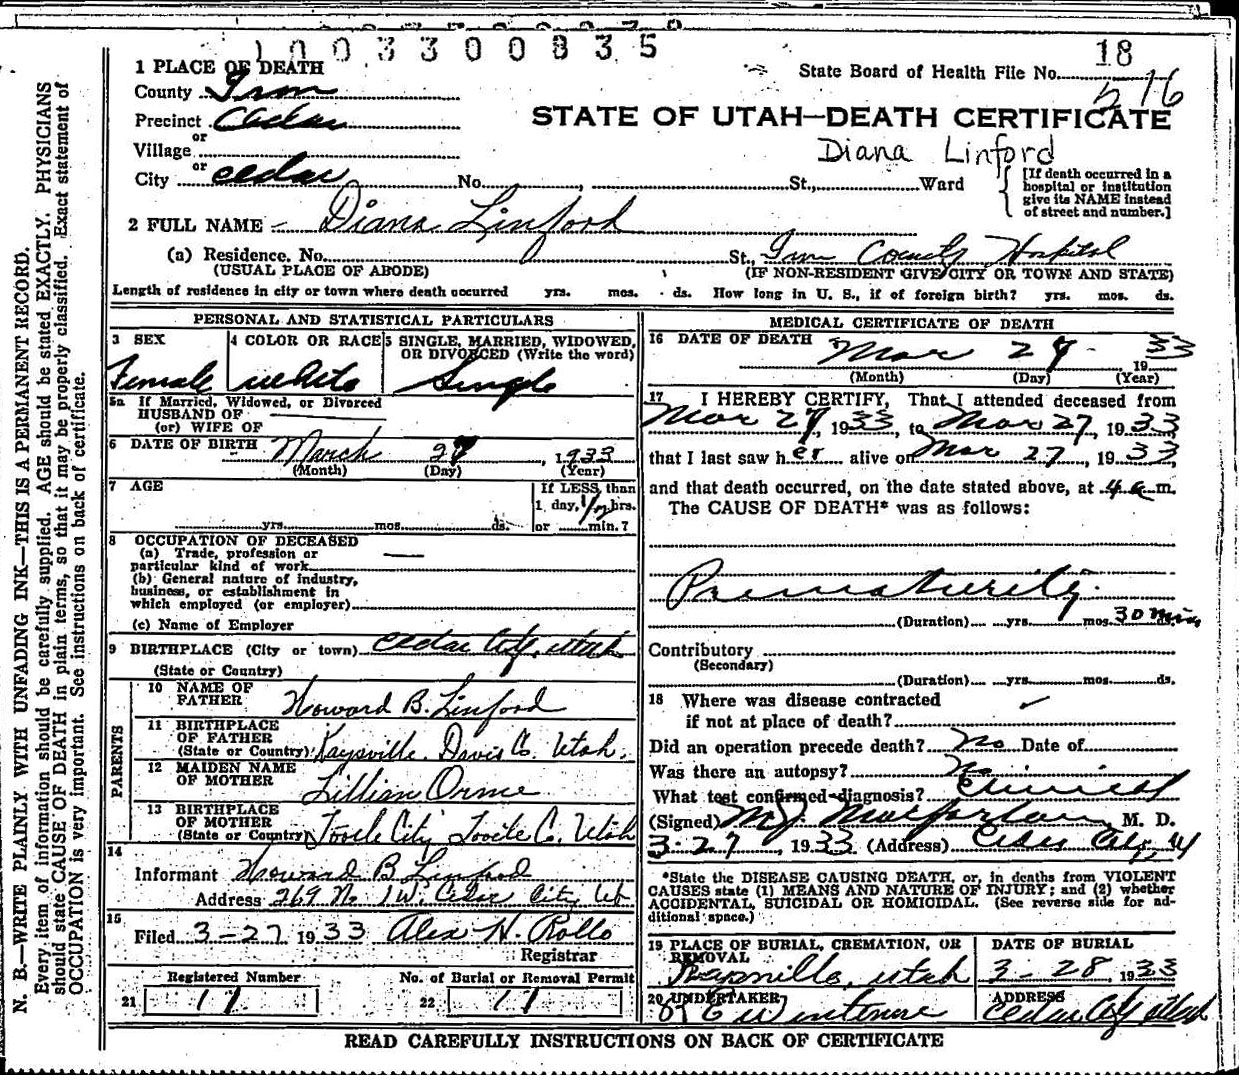 1003300835
18
State Board of Health File No. 
276
1 PLACE OF DEATH
County Iron
Precinct Cedar
or
Village
or
City Cedar No. , St., Ward
STATE OF UTAH—DEATH CERTIFICATE
Diana Linford
[If death occurred in a
hospital or institution
give its NAME instead
of street and number.]
2 FULL NAME Diana Linford
(a) Residence. No. St., Iron County Hospital
(USUAL PLACE OF ABODE) (IF NON-RESIDENT GIVE CITY OR TOWN AND STATE)
Length of residence in city or town where death occurred yrs. mos. ds. How long in U. S., if of foreign birth? yrs. mos. ds.
PERSONAL AND STATISTICAL PARTICULARS
3 SEX
Female
4 COLOR OR RACE
White
5 SINGLE, MARRIED, WIDOWED,
OR DIVORCED (Write the word)
Single
5a If Married, Widowed, or Divorced
HUSBAND OF
(or) WIFE OF
6 DATE OF BIRTH March 27, 1933
(Month) (Day) (Year)
7 AGE
yrs. mos. ds.
If LESS than
1 day, 1/2 hrs.
or min.?
8 OCCUPATION OF DECEASED
(a) Trade, profession or
particular kind of work
(b) General nature of industry,
business, or establishment in
which employed (or employer)
(c) Name of Employer
9 BIRTHPLACE (City or town) Cedar City, Utah
(State or Country)
PARENTS
10 NAME OF
FATHER Howard B. Linford
11 BIRTHPLACE
OF FATHER
(State or Country) Kaysville, Davis Co. Utah.
12 MAIDEN NAME
OF MOTHER Lillian Orme
13 BIRTHPLACE
OF MOTHER
(State or Country) Tooele City Tooele Co. Utah
14
Informant Howard B Linford
Address 269 No 1 W. Cedar City Ut.
15
Filed 3-27 1933 Alex H. Rollo
Registrar
Registered Number
21 17
No. of Burial or Removal Permit
22 17
MEDICAL CERTIFICATE OF DEATH
16 DATE OF DEATH Mar 27 1933
(Month) (Day) (Year)
17 I HEREBY CERTIFY, That I attended deceased from
Mar 27, 1933, to Mar 27, 1933
that I last saw her alive on Mar 27, 1933,
and that death occurred, on the date stated above, at 4 a m.
The CAUSE OF DEATH* was as follows:
Prematurity
(Duration) yrs. mos. 30 min
Contributory
(Secondary)
(Duration) yrs. mos. ds.
18 Where was disease contracted
if not at place of death?
Did an operation precede death? No Date of
Was there an autopsy? No
What test confirmed diagnosis? Clinical
(Signed) M. J. Macfarlane, M. D.
3-27, 1933 (Address) Cedar City, U
*State the DISEASE CAUSING DEATH, or, in deaths from VIOLENT
CAUSES state (1) MEANS AND NATURE OF INJURY; and (2) whether
ACCIDENTAL, SUICIDAL OR HOMICIDAL. (See reverse side for ad-
ditional space.)
19 PLACE OF BURIAL, CREMATION, OR
REMOVAL
Kaysville, Utah
DATE OF BURIAL
3-28, 1933
20 UNDERTAKER
ADDRESS
Cedar City Utah
READ CAREFULLY INSTRUCTIONS ON BACK OF CERTIFICATE
N. B.—WRITE PLAINLY WITH UNFADING INK—THIS IS A PERMANENT RECORD.
Every item of information should be carefully supplied. AGE should be stated EXACTLY. PHYSICIANS
should state CAUSE OF DEATH in plain terms, so that it may be properly classified. Exact statement of
OCCUPATION is very important. See instructions on back of certificate.